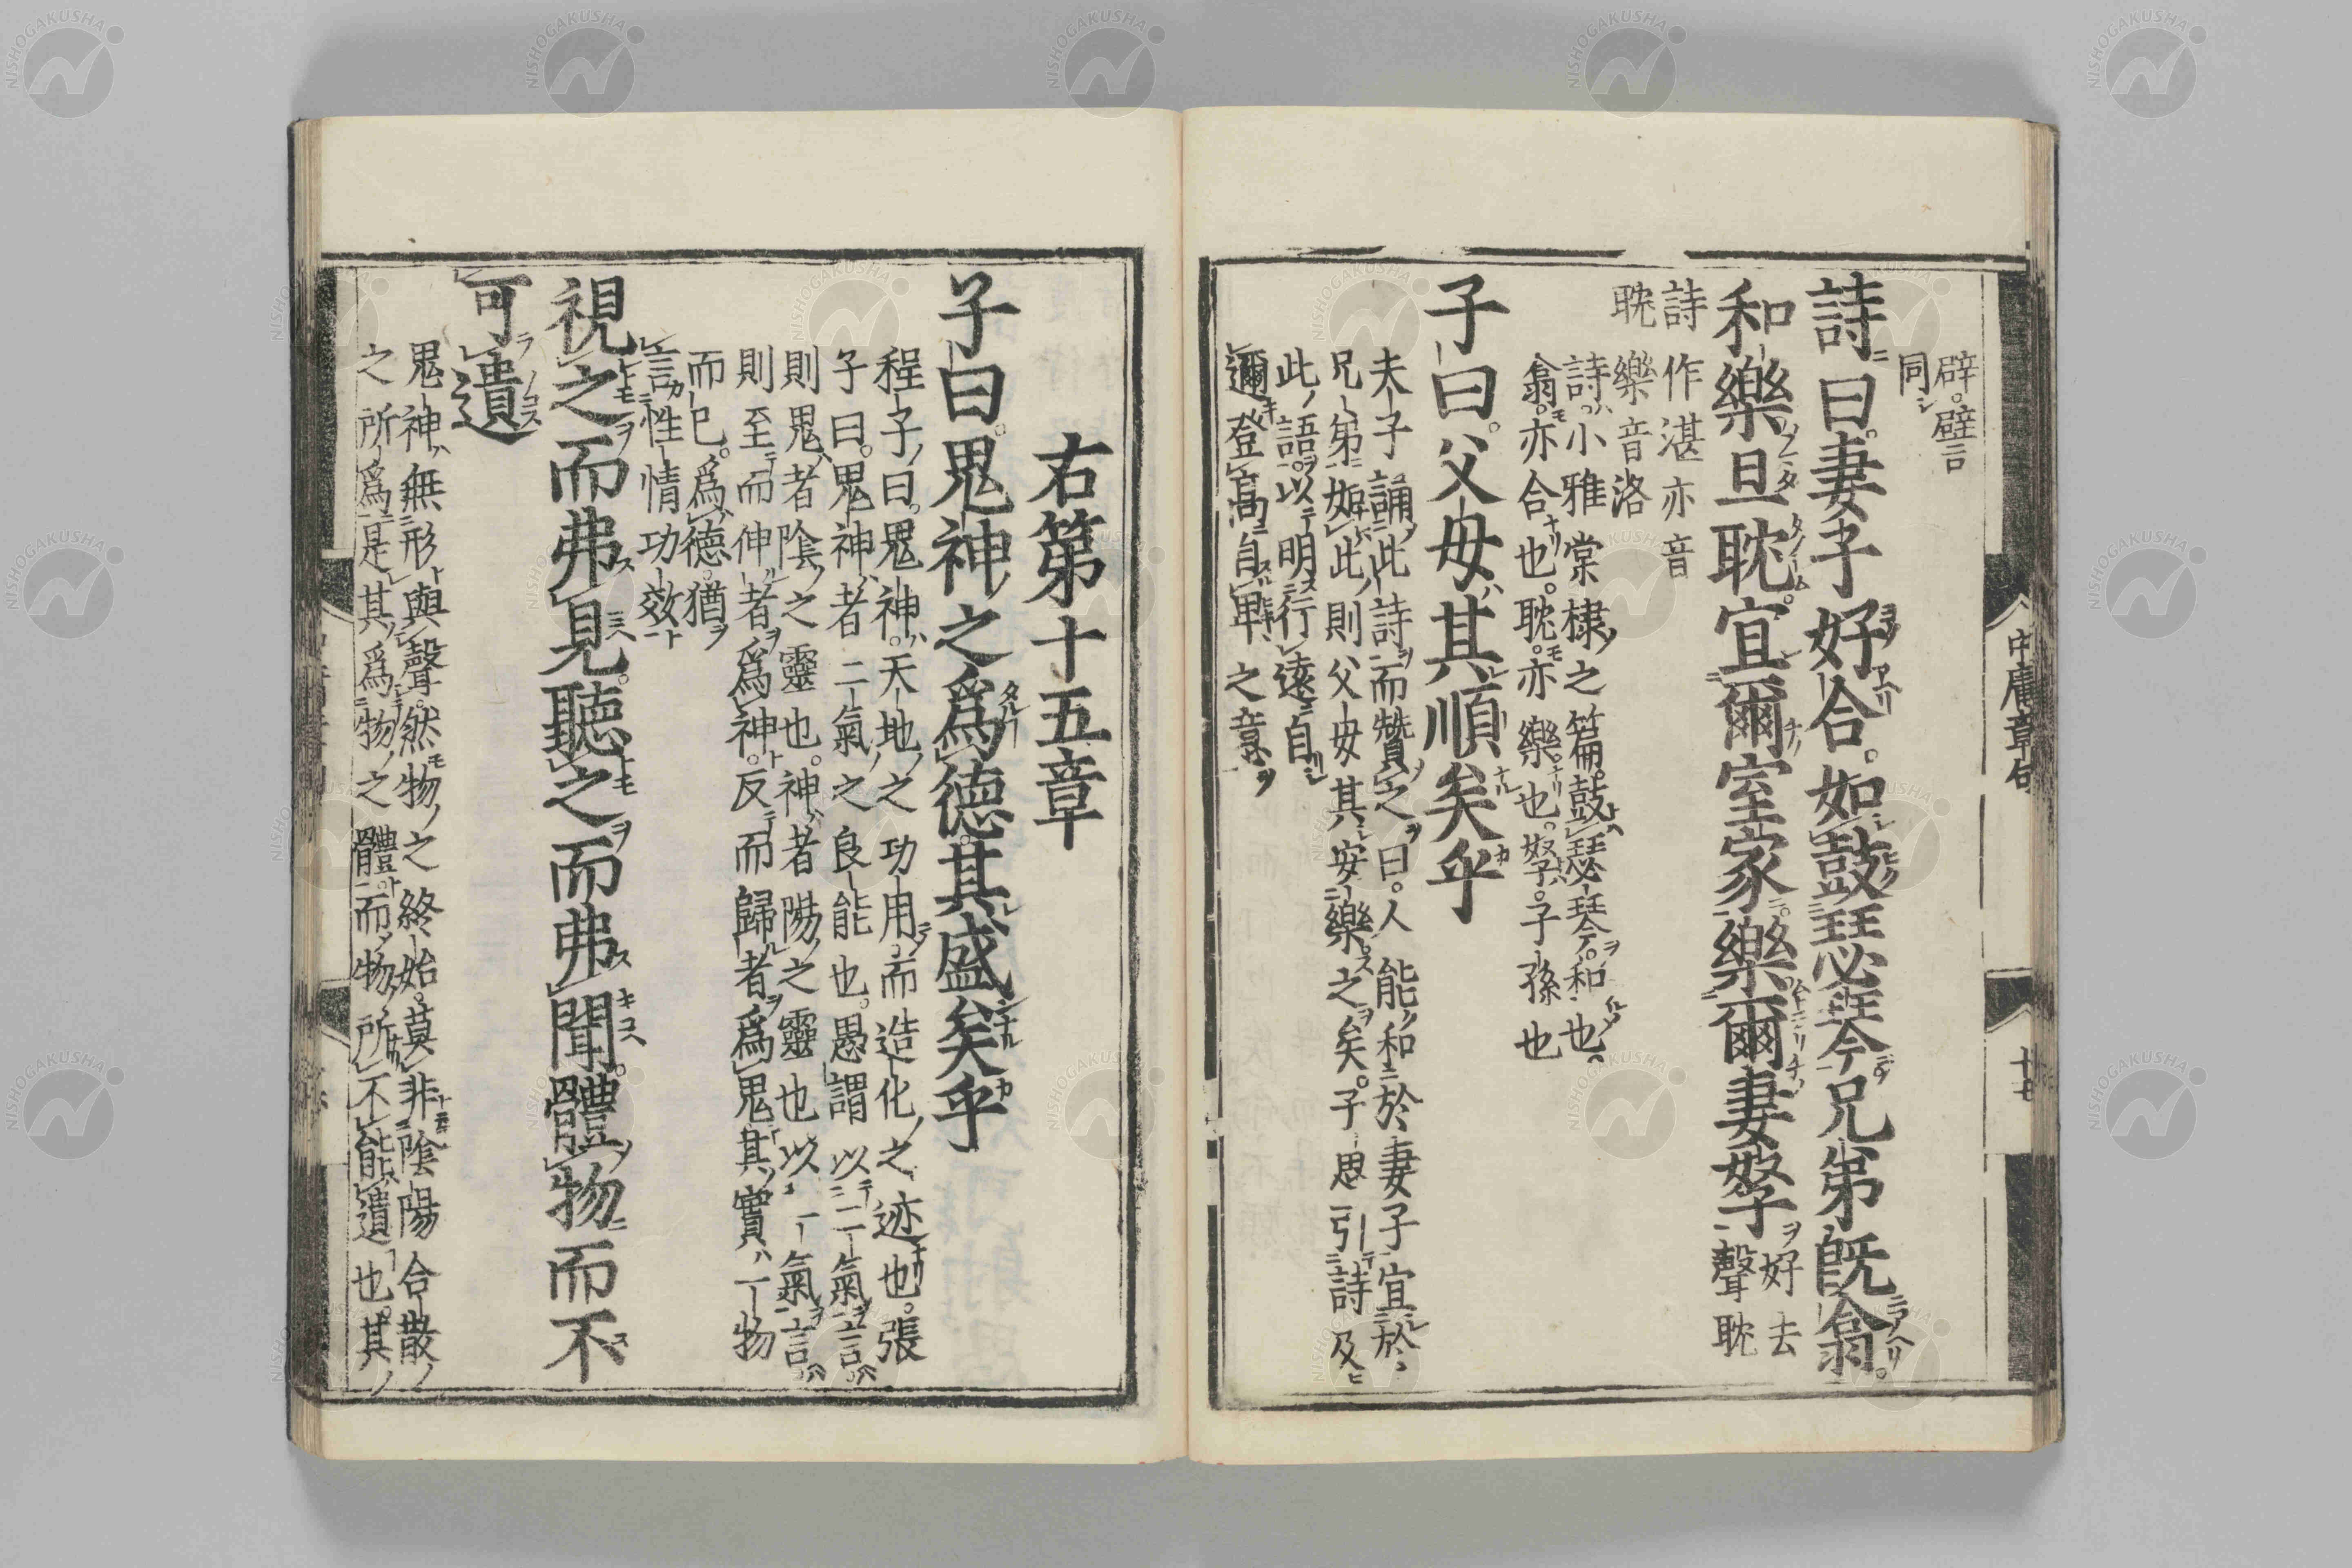 辟譬
同
詩曰妻子好合如鼓瑟琴兄弟既翕
和樂且耽宜爾室家樂爾妻孥好去
聲耽
詩作湛亦音
耽樂音洛
詩小雅棠棣之篇鼓瑟琴和也
翕亦合也耽亦樂也孥子孫也
子曰父母其順矣乎
夫子誦此詩而贊之曰人能和於妻子宜於
兄弟如此則父母其安樂之矣子思引詩及
此語以明行遠自
邇登高自卑之意
中庸章句
右第十五章
子曰鬼神之爲德其盛矣乎
程子曰鬼神天地之功用而造化之迹也張
子曰鬼神者二氣之良能也愚謂以二氣言
則鬼者陰之靈也神者陽之靈也以一氣言
則至而伸者爲神反而歸者爲鬼其實一物
而已爲德猶
言性情功效
視之而弗見聽之而弗聞體物而不
可遺
鬼神無形與聲然物之終始莫非陰陽合散
之所爲是其爲物之體而物所不能遺也其
NISHOGAKUSHA